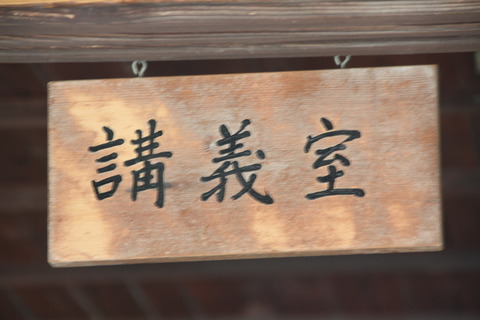 講義室